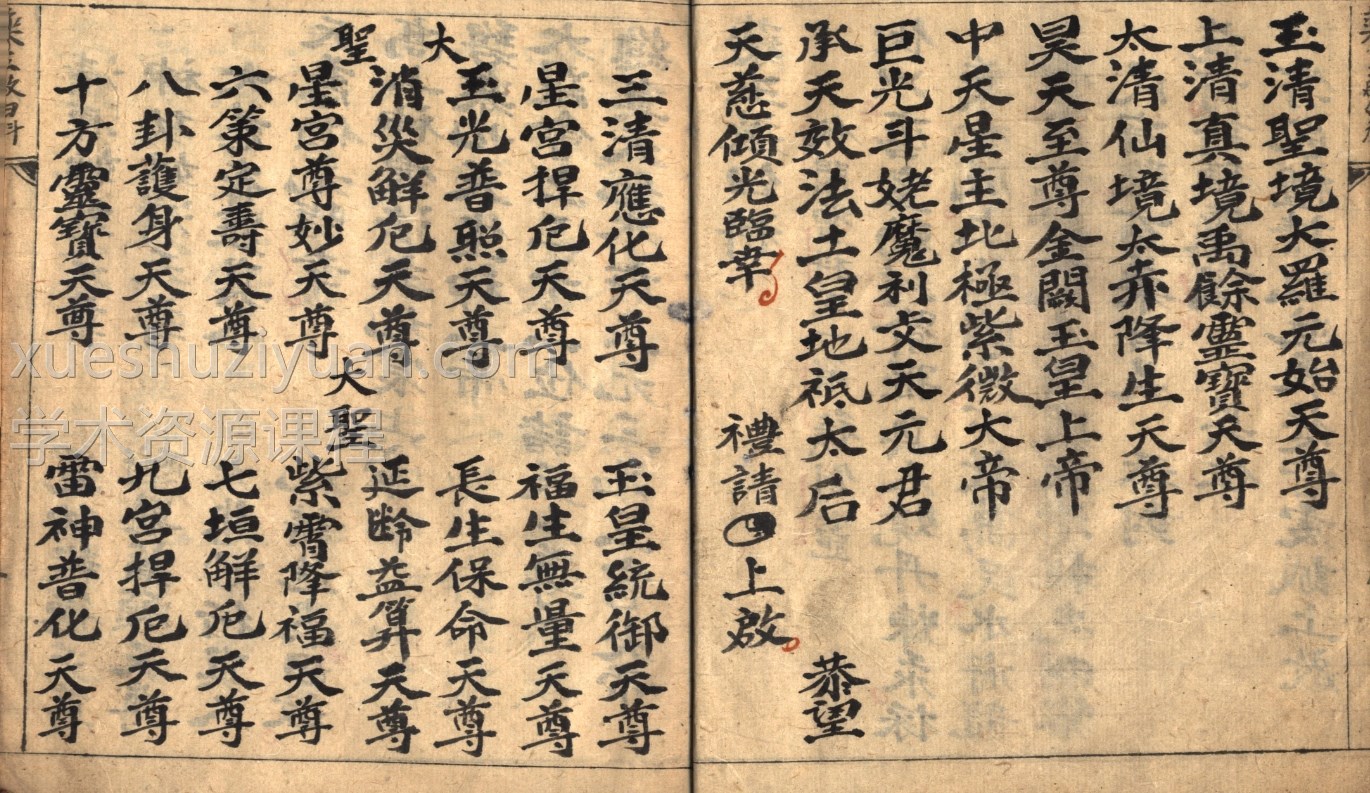 玉清聖境大羅元始天尊
上清真境禹餘靈寶天尊
太清仙境太赤降生天尊
昊天至尊金闕玉皇上帝
中天星主北極紫微大帝
巨光斗姥魔利支天元君
承天效法土皇地祗太后 恭望
天慈傾光臨幸 禮請 上啟
大聖
三清應化天尊 玉皇統御天尊
星宮捍厄天尊 福生無量天尊
玉光普照天尊 長生保命天尊
消災解厄天尊 延齡益算天尊
大聖
星宮尊妙天尊 紫霄降福天尊
六策定壽天尊 七垣解厄天尊
八卦護身天尊 九宮捍厄天尊
十方靈寶天尊 雷神普化天尊
xueshuziyuan.com
学术资源课程